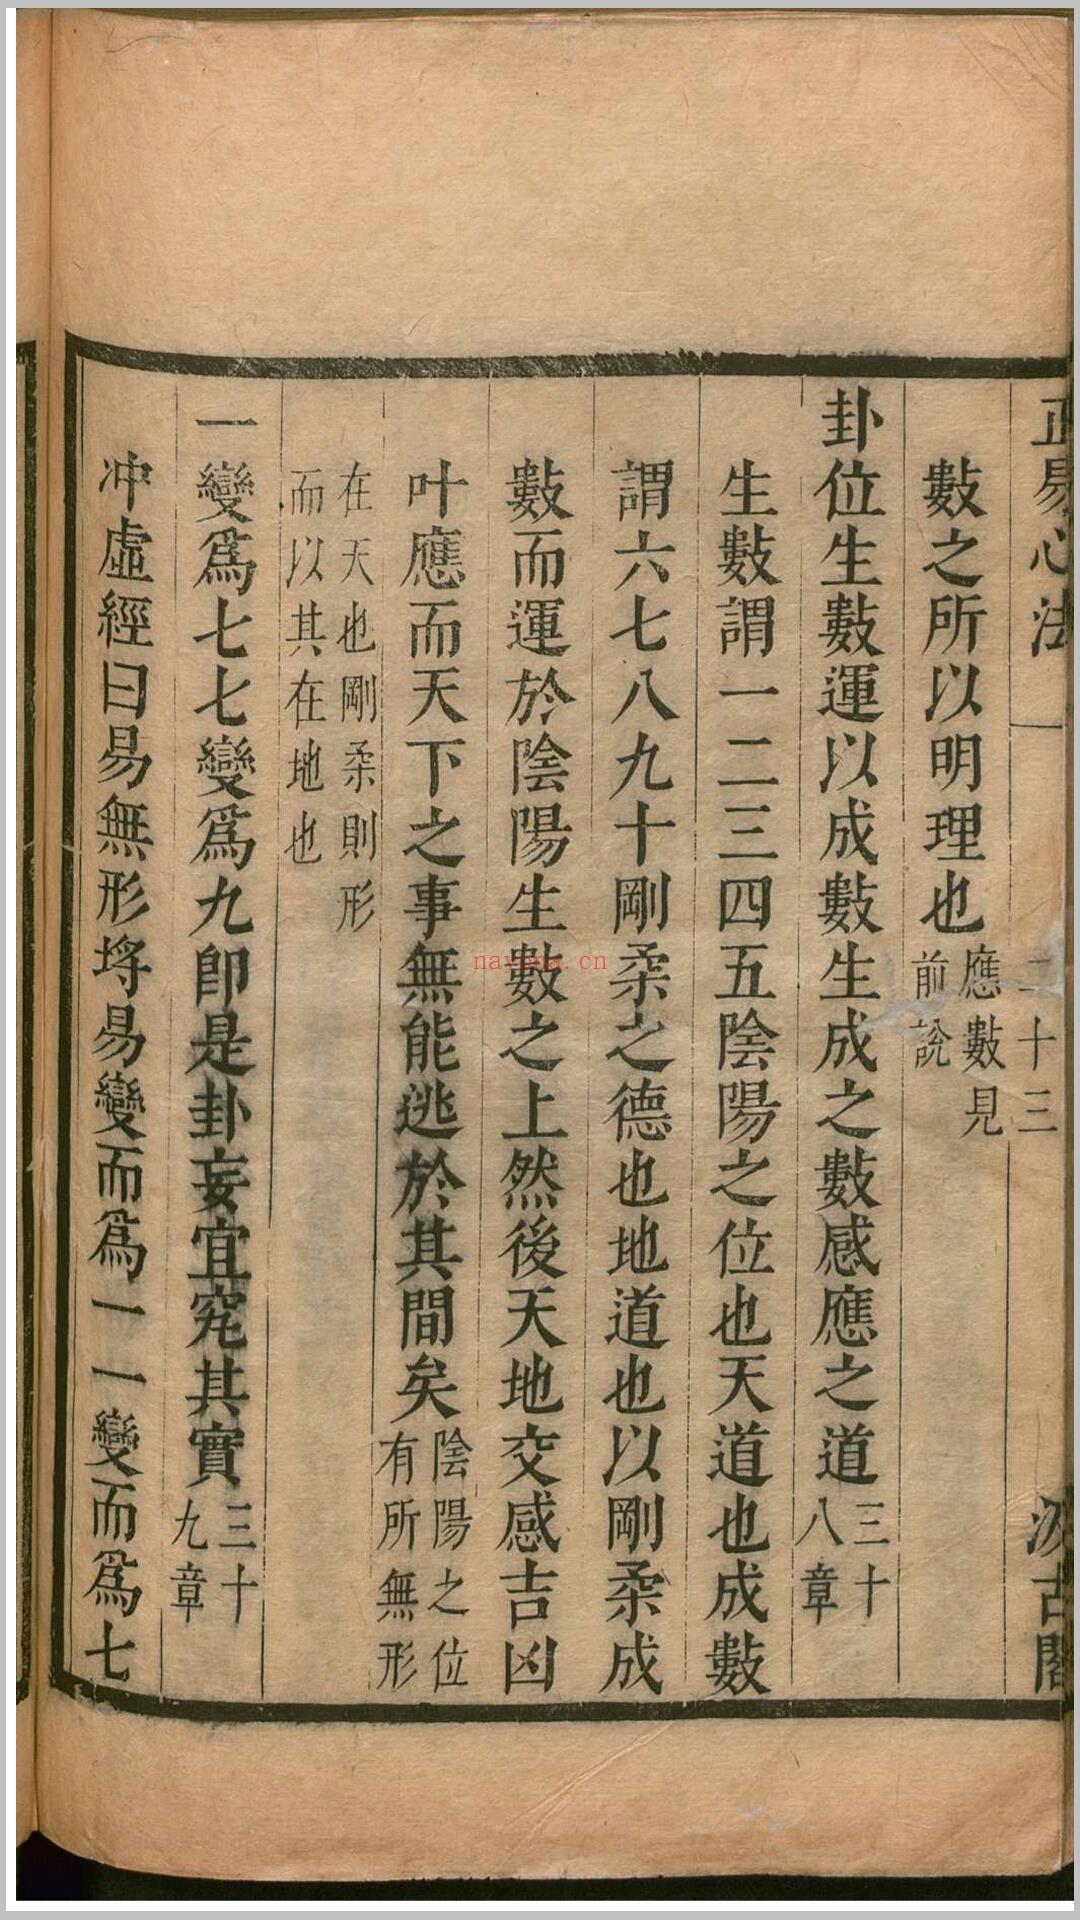 正易心法
二十三
汲古閣
數之所以明理也應數見前說
卦位生數運以成數生成之數感應之道三十八章
生數謂一二三四五陰陽之位也天道也成數
謂六七八九十剛柔之德也地道也以剛柔成
數而運於陰陽生數之上然後天地交感吉凶
叶應而天下之事無能逃於其間矣陰陽之位有所無形
在天也剛柔則形而以其在地也
一變爲七七變爲九卽是卦妄宜究其實三十九章
冲虛經曰易無形埓易變而爲一一變而爲七
nayona.cn